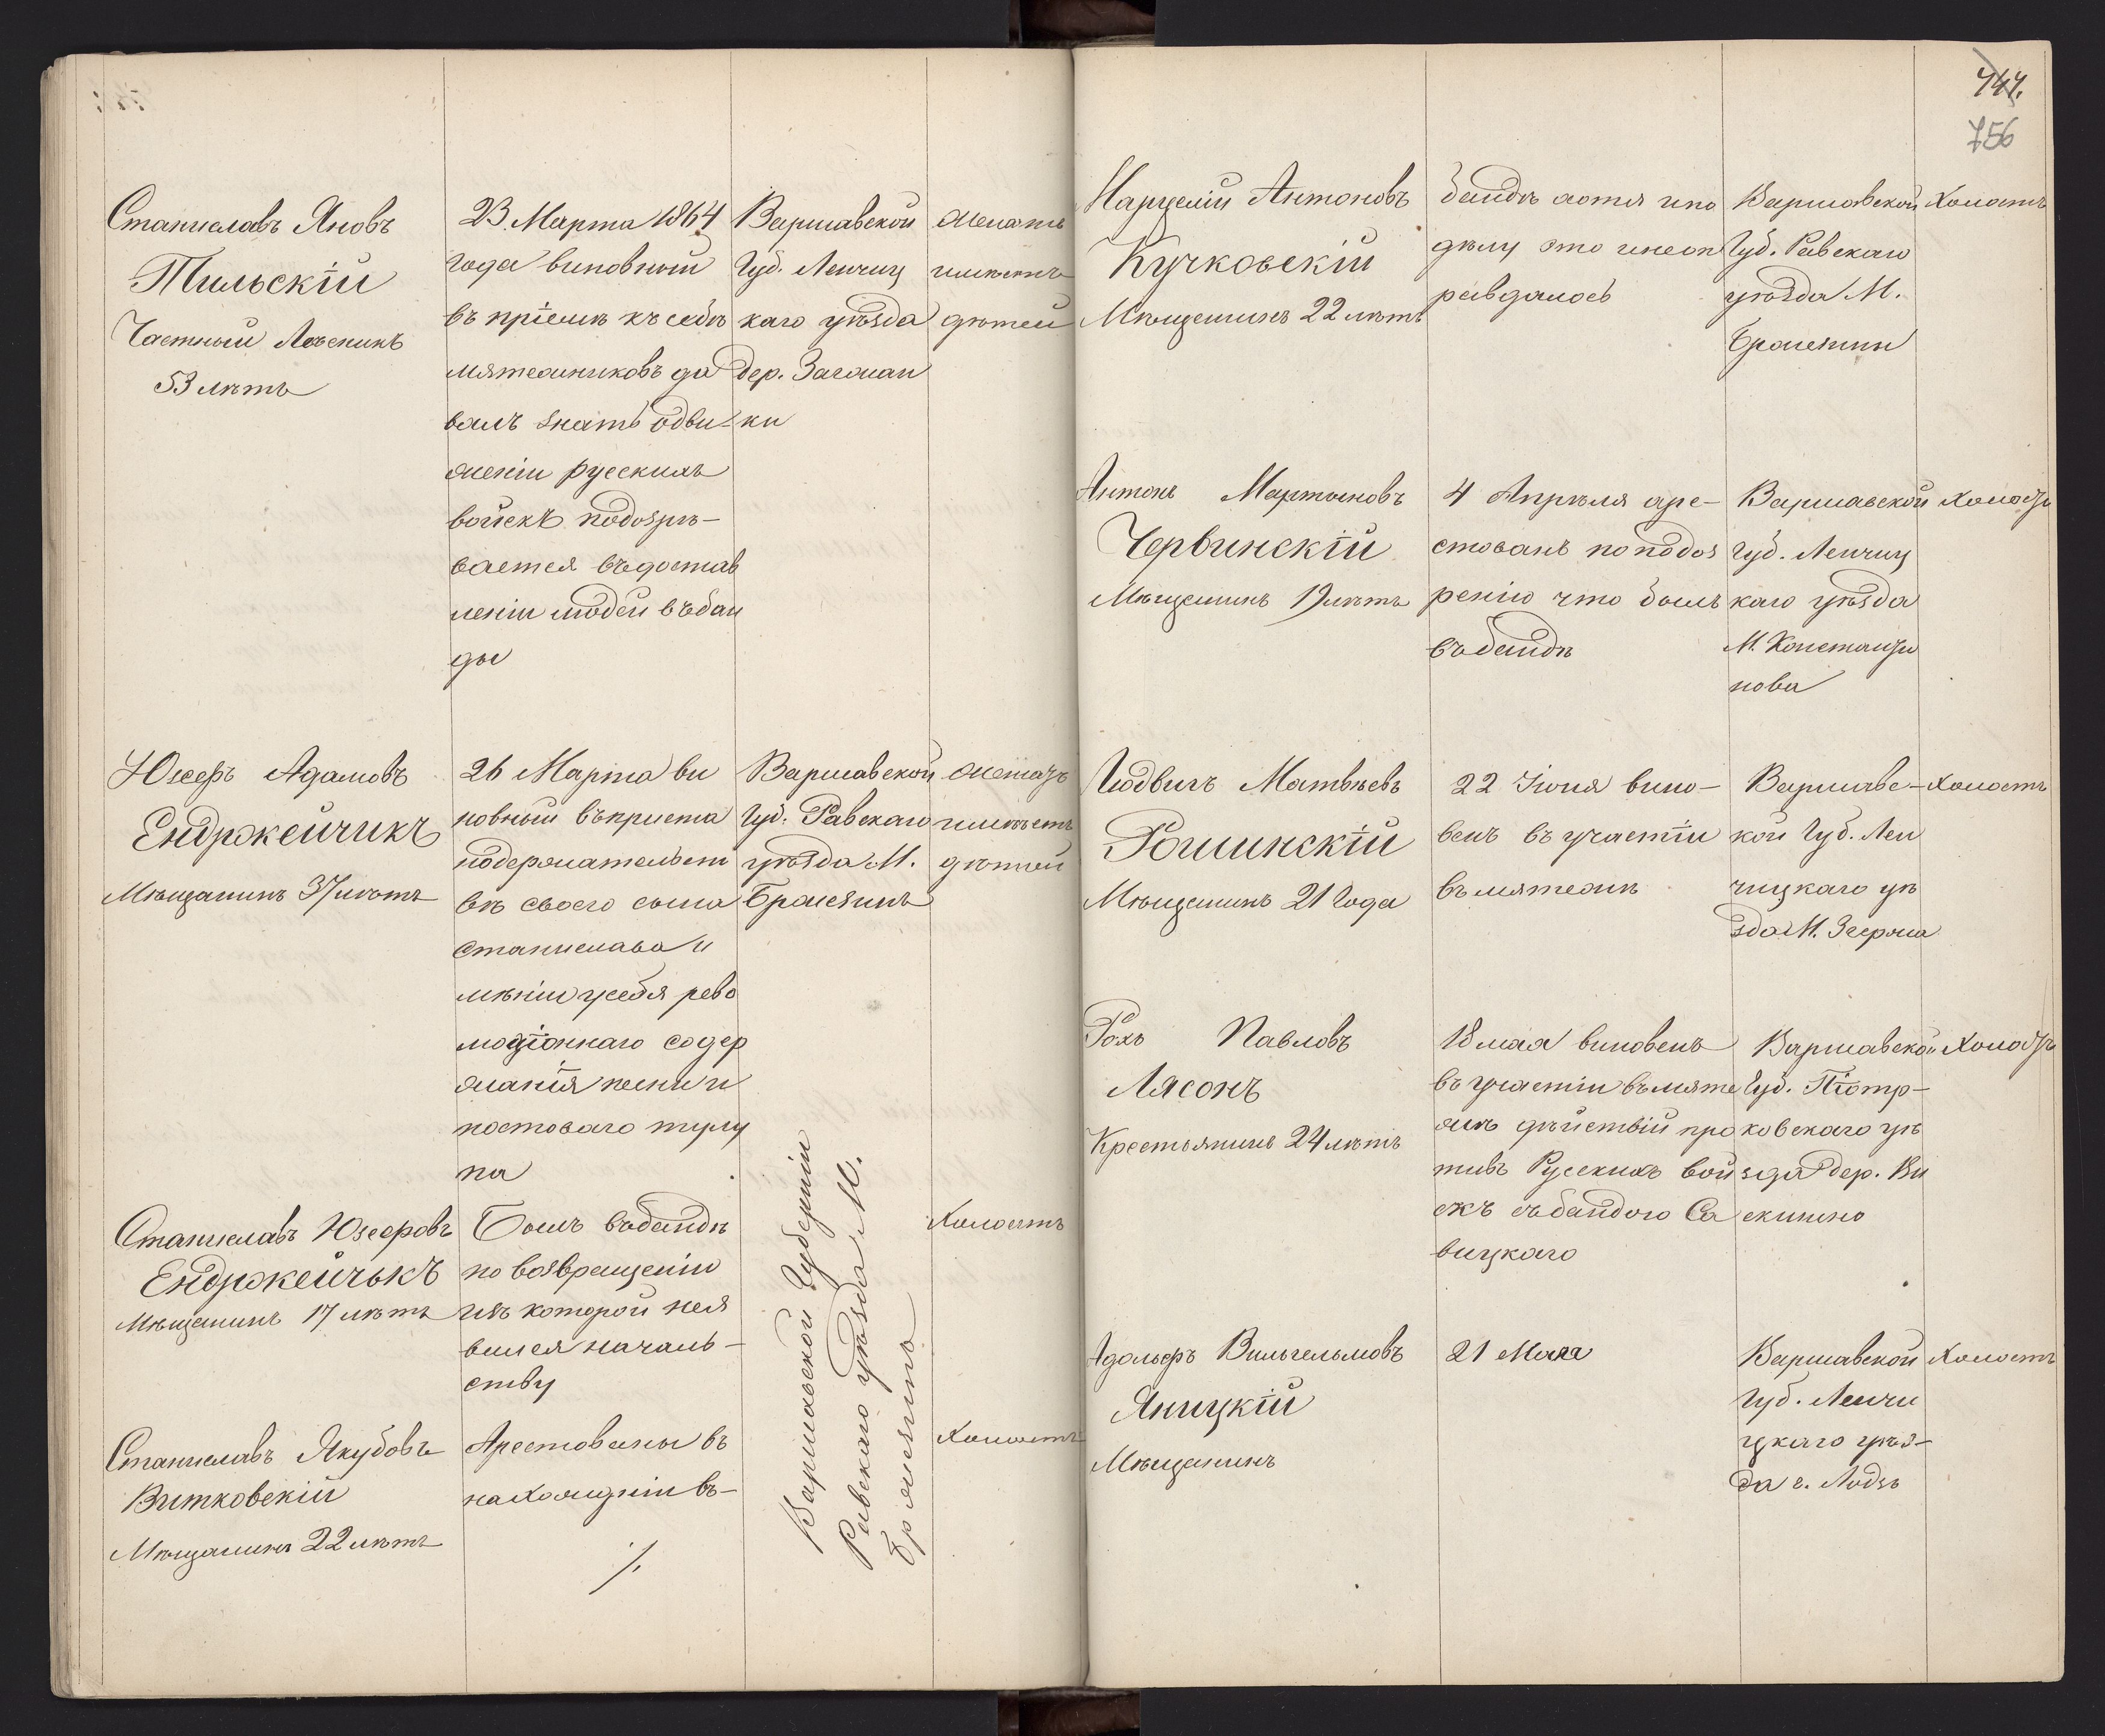 Станиславъ Яновъ
Тильскій
Частный Лѣсникъ
53 лѣтъ
23 Марта 1864
года виновный
въ пріемѣ къ себѣ
мятежниковъ да
валъ знать о дви-
женіи русскихъ
войскъ подозрѣ-
вается въ достав
леніи людей въ бан
ды
Варшавской
Губ. Ленчиц
каго уѣзда
дер.
ки
Женатъ
имѣетъ
дѣтей
Юзефъ Адамовъ
Енджейчикъ
Мѣщанинъ 37 лѣтъ
26 Марта ви
новный въ приста
нодержательст
вѣ своего сына
Станислава и
мѣніи у себя рево
люціоннаго содер
жанія песни и
постоваго тулу
па
Варшавской
Губ. Равскаго
уѣзда М.
Бржезинъ
Женатъ
имѣетъ
дѣтей
Станиславъ Юзефовъ
Енджейчыкъ
Мѣщанинъ 17 лѣтъ
Былъ въ бандѣ
по возвращеніи
изъ которой не я
вился началь-
ству
Холостъ
Станиславъ Якубовъ
Витковскій
Мѣщанинъ 22 лѣтъ
Арестованы въ
нахожденіи въ-
./.
Варшавской Губерніи
Равскаго уѣзда М.
Бржезино
Холостъ
744.
756
Марцелій Антоновъ
Кучковскій
Мѣщанинъ 22 лѣтъ
бандѣ хотя и по
дѣлу это и не оп
равдалось
Варшавской
Губ. Равскаго
уѣзда М.
Бржезины
Холостъ
Антонъ Мартыновъ
Червинскій
Мѣщанинъ 19 лѣтъ
4 Апрѣля аре-
стованъ по подоз
ренію что былъ
въ бандѣ
Варшавской
Губ. Ленчиц
каго уѣзда
М. Константи
нова
Холостъ
Людвигъ Матвѣевъ
Рошинскій
Мѣщанинъ 21 Года
22 Іюня вино-
венъ въ участіи
въ мятежѣ
Варшавс-
кой Губ. Лен
чицкаго уѣ
зда М. Згержа
Холостъ
Рохъ Павловъ
Лясонъ
Крестьянинъ 24 лѣтъ
18 мая виновенъ
въ участіи въ мяте
жѣ дѣйствій про
тивъ Русскихъ вой
скъ съ бандою Са
вицкаго
Варшавской
Губ. Піотр-
ковскаго уѣ
зда дер. Ви
скитно
Холостъ
Адольфъ Вильгельмовъ
Яницкій
Мѣщанинъ
21 Мая
Варшавской
Губ. Ленчи
цкаго уѣз-
да г. Лодзь
Холостъ